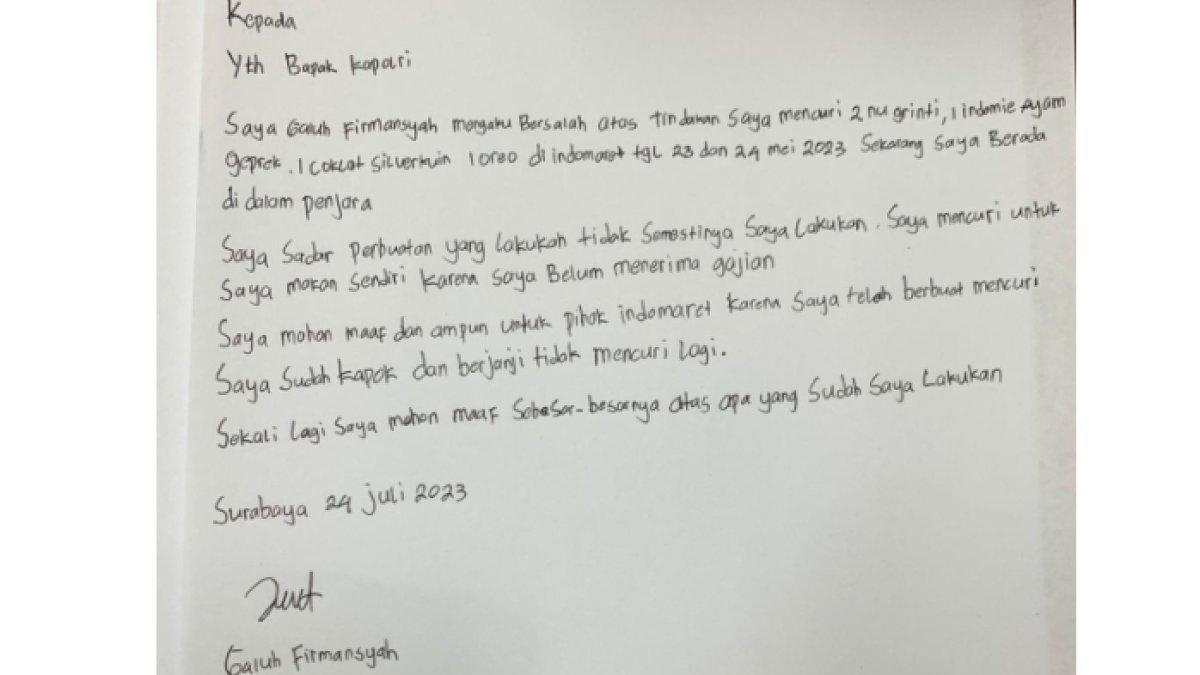 Kepada
Yth Bapak Kapolri
Saya Galuh Firmansyah mengaku Bersalah atas tindakan Saya mencuri 2 nu grinti, 1 indomie Ayam
geprek. 1 coklat Silverkuin 1 oreo di indomaret tgl 23 dan 24 mei 2023 Sekarang Saya Berada
di dalam penjara
Saya Sadar Perbuatan yang lakukan tidak Semestinya Saya Lakukan. Saya mencuri untuk
Saya makan Sendiri karena Saya Belum menerima gajian
Saya mohon maaf dan ampun untuk pihak indomaret karena Saya telah berbuat mencuri
Saya Sudah kapok dan berjanji tidak mencuri lagi.
Sekali lagi Saya mohon maaf Sebesar-besarnya atas apa yang Sudah Saya Lakukan
Surabaya 24 juli 2023
Galuh Firmansyah